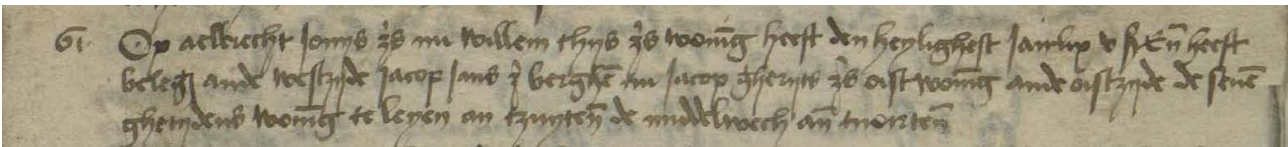 61 Op aelbrecht Jonys zs nu willem thijs zs wonīg heeft den heylighest Jairlix v ß Eñ heeft
beleg ande westzyde Jacop Jans z berghē nu Jacop gherijts zs oist wonīg ande oistzyde de seuē
ghetydens wonīg te leyen an tzuyteñ de middelwech añ tnorteñ